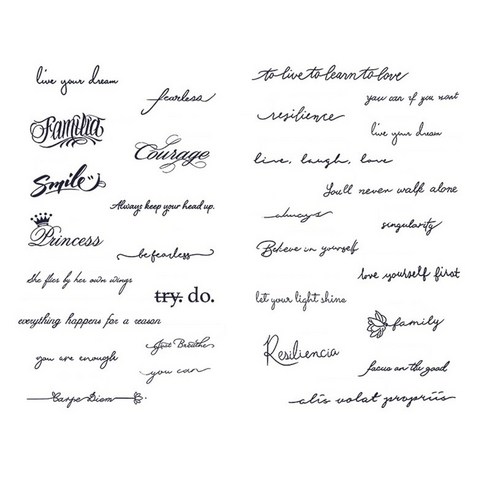 live your dream
fearless
Familia
Courage
Smile
Always keep your head up.
Princess
be fearless
She flies by her own wings
try. do.
everything happens for a reason
Just Breathe
you are enough
you can
Carpe Diem
to live to learn to love
you can if you want
resilience
live your dream
live, laugh, love
You'll never walk alone
always
singularity
Believe in yourself
love yourself first
let your light shine
family
Resiliencia
focus on the good
alis volat propriis